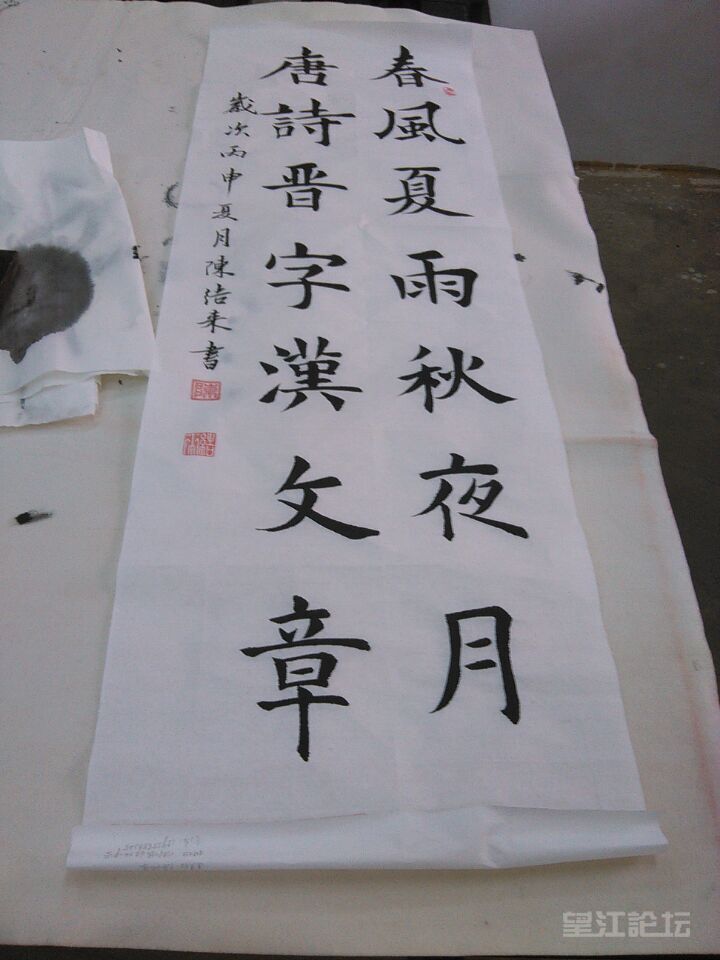 春風夏雨秋夜月
唐詩晋字漢文章
歲次丙申夏月陳結來書
望江論坛